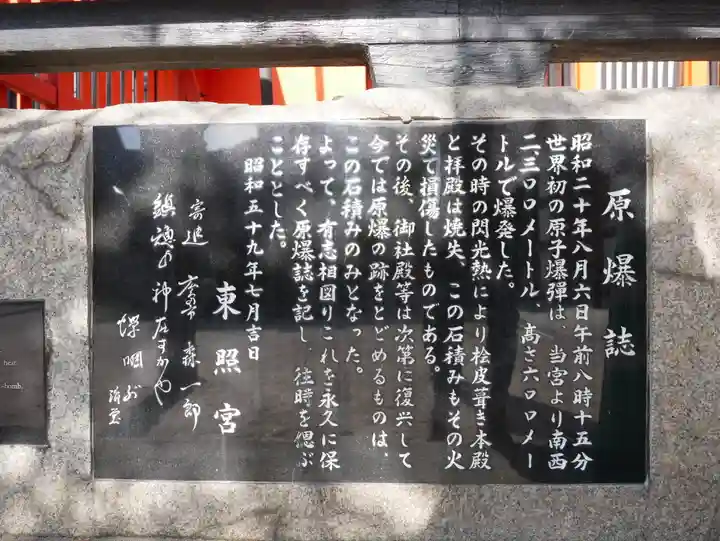 原爆誌
昭和二十年八月六日午前八時十五分
世界初の原子爆弾は、当宮より南西
二、三〇〇メートル、高さ六〇〇メー
トルで爆発した。
その時の閃光熱により桧皮葺き本殿
と拝殿は焼失、この石積みもその火
災で損傷したものである。
その後、御社殿等は次第に復興して
今では原爆の跡をとどめるものは、
この石積みのみとなった。
よって、有志相図りこれを永久に保
存すべく原爆誌を記し、往時を偲ぶ
こととした。
昭和五十九年七月吉日
東照宮
森一郎
heat
-bomb.